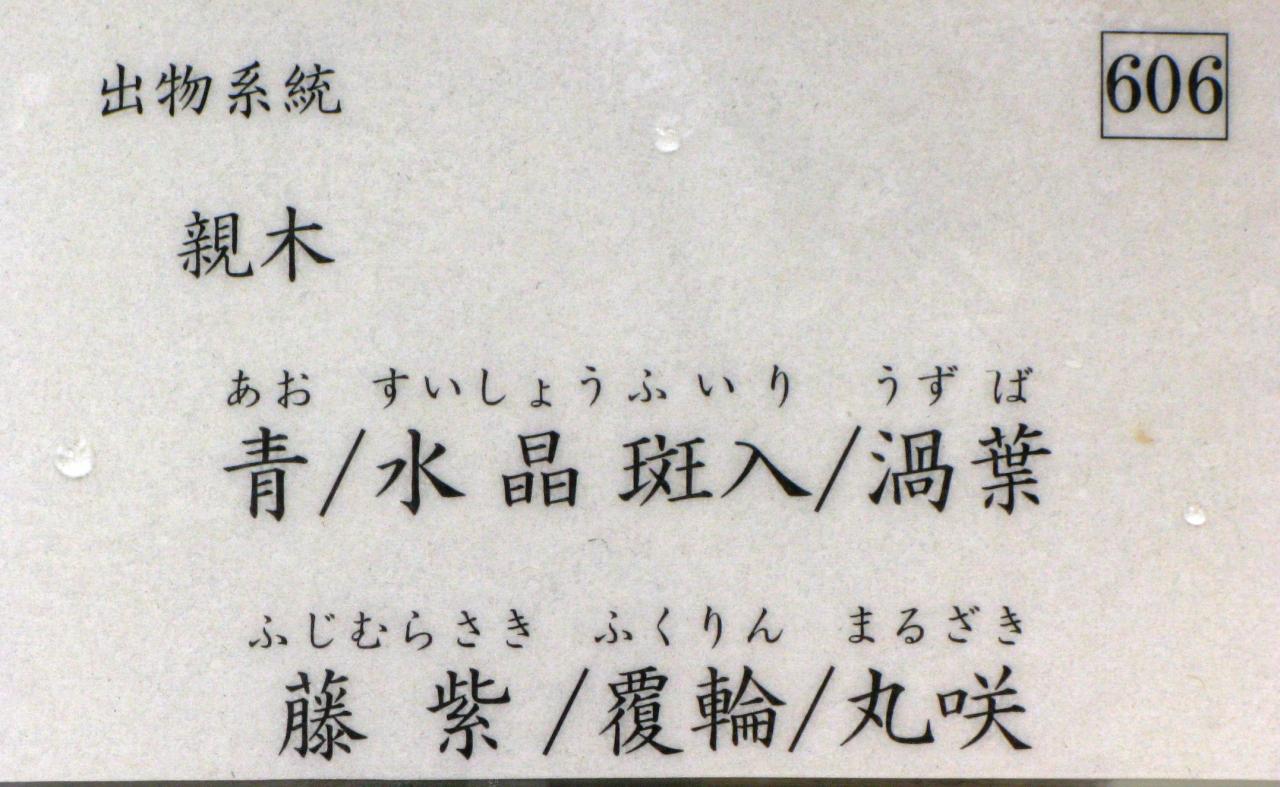 出物系統 606
親木
あお すいしょうふいり うずば
青/水晶斑入/渦葉
ふじむらさき ふくりん まるざき
藤紫/覆輪/丸咲